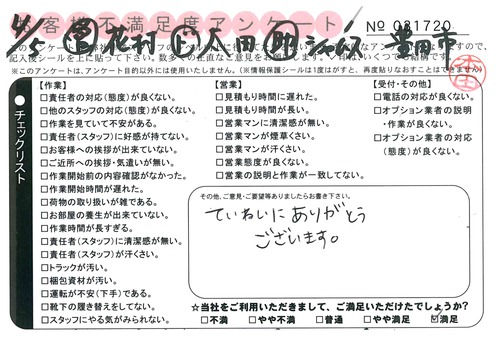 お客様不満足度アンケート
No 081720
4/5 花村 八田 豊田市
記入後シールを上に貼って下さい。
※このアンケートは、アンケート目的以外には使用いたしません。(※情報保護シールは1度はがすと、再度貼りなおすことはできません)
チェックリスト
【作業】
□責任者の対応(態度)が良くない。
□他のスタッフの対応(態度)が良くない。
□作業を見ていて不安がある。
□責任者(スタッフ)に好感が持てない。
□お客様への挨拶が出来ていない。
□ご近所への挨拶・気遣いが無い。
□作業開始前の内容確認がなかった。
□作業開始時間が遅れた。
□荷物の取り扱いが雑である。
□お部屋の養生が出来ていない。
□作業時間が長すぎる。
□責任者(スタッフ)に清潔感が無い。
□責任者(スタッフ)が汗くさい。
□トラックが汚い。
□梱包資材が汚い。
□運転が不安(下手)である。
□靴下の履き替えをしてない。
□スタッフにやる気がみられない。
【営業】
□見積もり時間に遅れた。
□見積もり時間が長い。
□営業マンに清潔感が無い。
□営業マンが煙草くさい。
□営業マンが汗くさい。
□営業態度が良くない。
□営業の説明と作業が一致してない。
【受付・その他】
□電話の対応が良くない。
□オプション業者の説明
・作業が良くない。
□オプション業者の対応
(態度)が良くない。
その他、ご意見・ご要望等ありましたらお書き下さい。
ていねいにありがとう
ございます。
☆当社をご利用いただきまして、ご満足いただけたでしょうか?
□不満 □やや不満 □普通 □やや満足 ☑満足